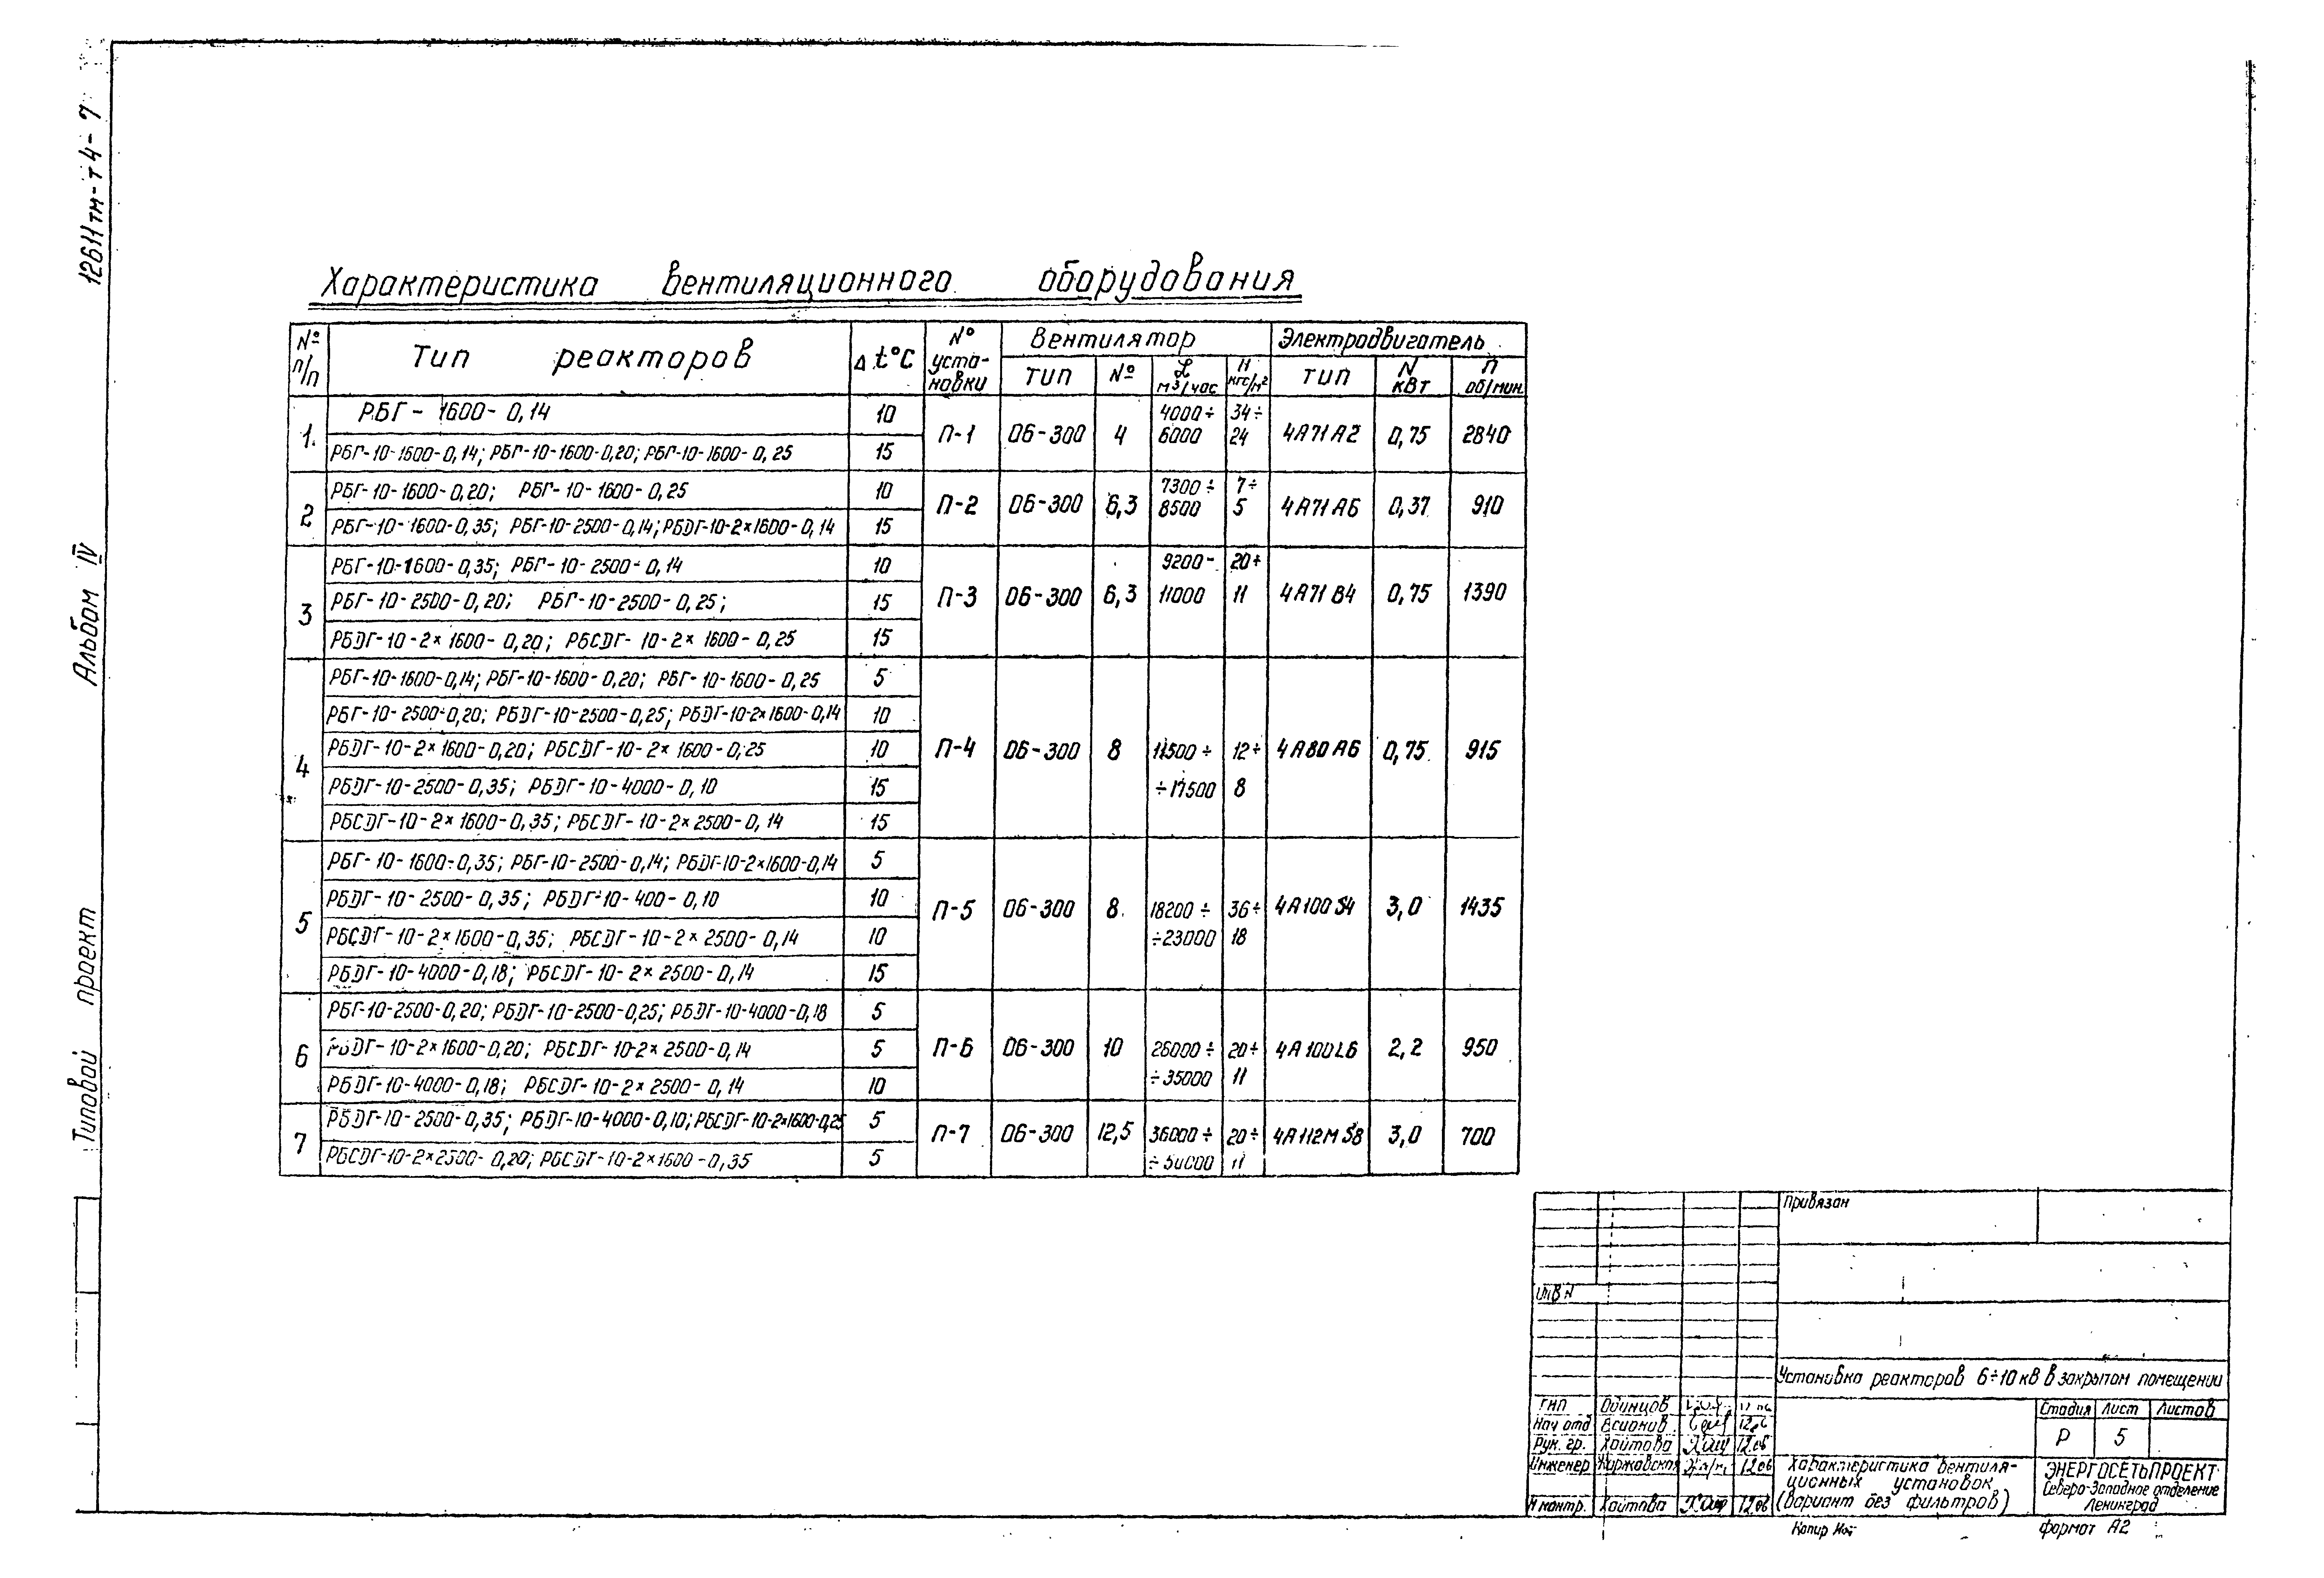 12611тм-т4-7
Альбом IV
Типовой проект
Характеристика вентиляционного оборудования
№ п/п
Тип реакторов
Δ t°C
№ установки
Вентилятор
Электродвигатель
тип
№
L м³/час
H кгс/м²
тип
N кВт
п об/мин.
1.
РБГ- 1600-0,14
10
РБГ-10-1600-0,14; РБГ-10-1600-0,20; РБГ-10-1600-0,25
15
П-1
06-300
4
4000÷
6000
34÷
24
4А71А2
0,75
2840
2
РБГ-10-1600-0,20; РБГ-10-1600-0,25
10
РБГ-10-1600-0,35; РБГ-10-2500-0,14; РБDГ-10-2×1600-0,14
15
П-2
06-300
6,3
7300÷
8500
7÷
5
4А71А6
0,37
910
3
РБГ-10-1600-0,35; РБГ-10-2500-0,14
10
РБГ-10-2500-0,20; РБГ-10-2500-0,25;
15
РБDГ-10-2×1600-0,20; РБСDГ-10-2×1600-0,25
15
П-3
06-300
6,3
9200-
11000
20÷
11
4А71В4
0,75
1390
4
РБГ-10-1600-0,14; РБГ-10-1600-0,20; РБГ-10-1600-0,25
5
РБГ-10-2500-0,20; РБDГ-10-2500-0,25; РБDГ-10-2×1600-0,14
10
РБDГ-10-2×1600-0,20; РБСDГ-10-2×1600-0,25
10
РБDГ-10-2500-0,35; РБDГ-10-4000-0,10
15
РБСDГ-10-2×1600-0,35; РБСDГ-10-2×2500-0,14
15
П-4
06-300
8
÷17500
12÷
8
4А80А6
0,75
915
5
РБГ-10-1600-0,35; РБГ-10-2500-0,14; РБDГ-10-2×1600-0,14
5
РБDГ-10-2500-0,35; РБDГ-10-400-0,10
10
РБСDГ-10-2×1600-0,35; РБСDГ-10-2×2500-0,14
10
РБDГ-10-4000-0,18; РБСDГ-10-2×2500-0,14
15
П-5
06-300
8
18200÷
÷23000
36÷
18
4А100S4
3,0
1435
6
РБГ-10-2500-0,20; РБDГ-10-2500-0,25; РБDГ-10-4000-0,18
5
РБDГ-10-2×1600-0,20; РБСDГ-10-2×2500-0,14
5
РБDГ-10-4000-0,18; РБСDГ-10-2×2500-0,14
10
П-6
06-300
10
26000÷
÷35000
20÷
11
4А100L6
2,2
950
7
РБDГ-10-2500-0,35; РБDГ-10-4000-0,10; РБСDГ-10-2×1600-0,25
5
РБСDГ-10-2×2500-0,20; РБСDГ-10-2×1600-0,35
5
П-7
06-300
12,5
36000÷
÷50000
20÷
11
4А112МS8
3,0
700
Привязан
ИНВ N
Установка реакторов 6÷10 кВ в закрытом помещении
ГИП Одинцов
Нач отд
Рук. гр. Хаитова 12.06
Инженер 12.06
Н контр. Хаитова 12.06
Стадия Лист Листов
Р 5
Характеристика вентиля-
ционных установок
(вариант без фильтров)
ЭНЕРГОСЕТЬПРОЕКТ
Северо-Западное отделение
Ленинград
Копир
формат А2